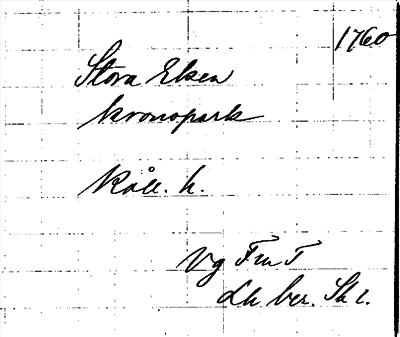 1760
Stora Eken
kronopark
Kåll. h.
Vg FmT
Lh ber. Sk l.